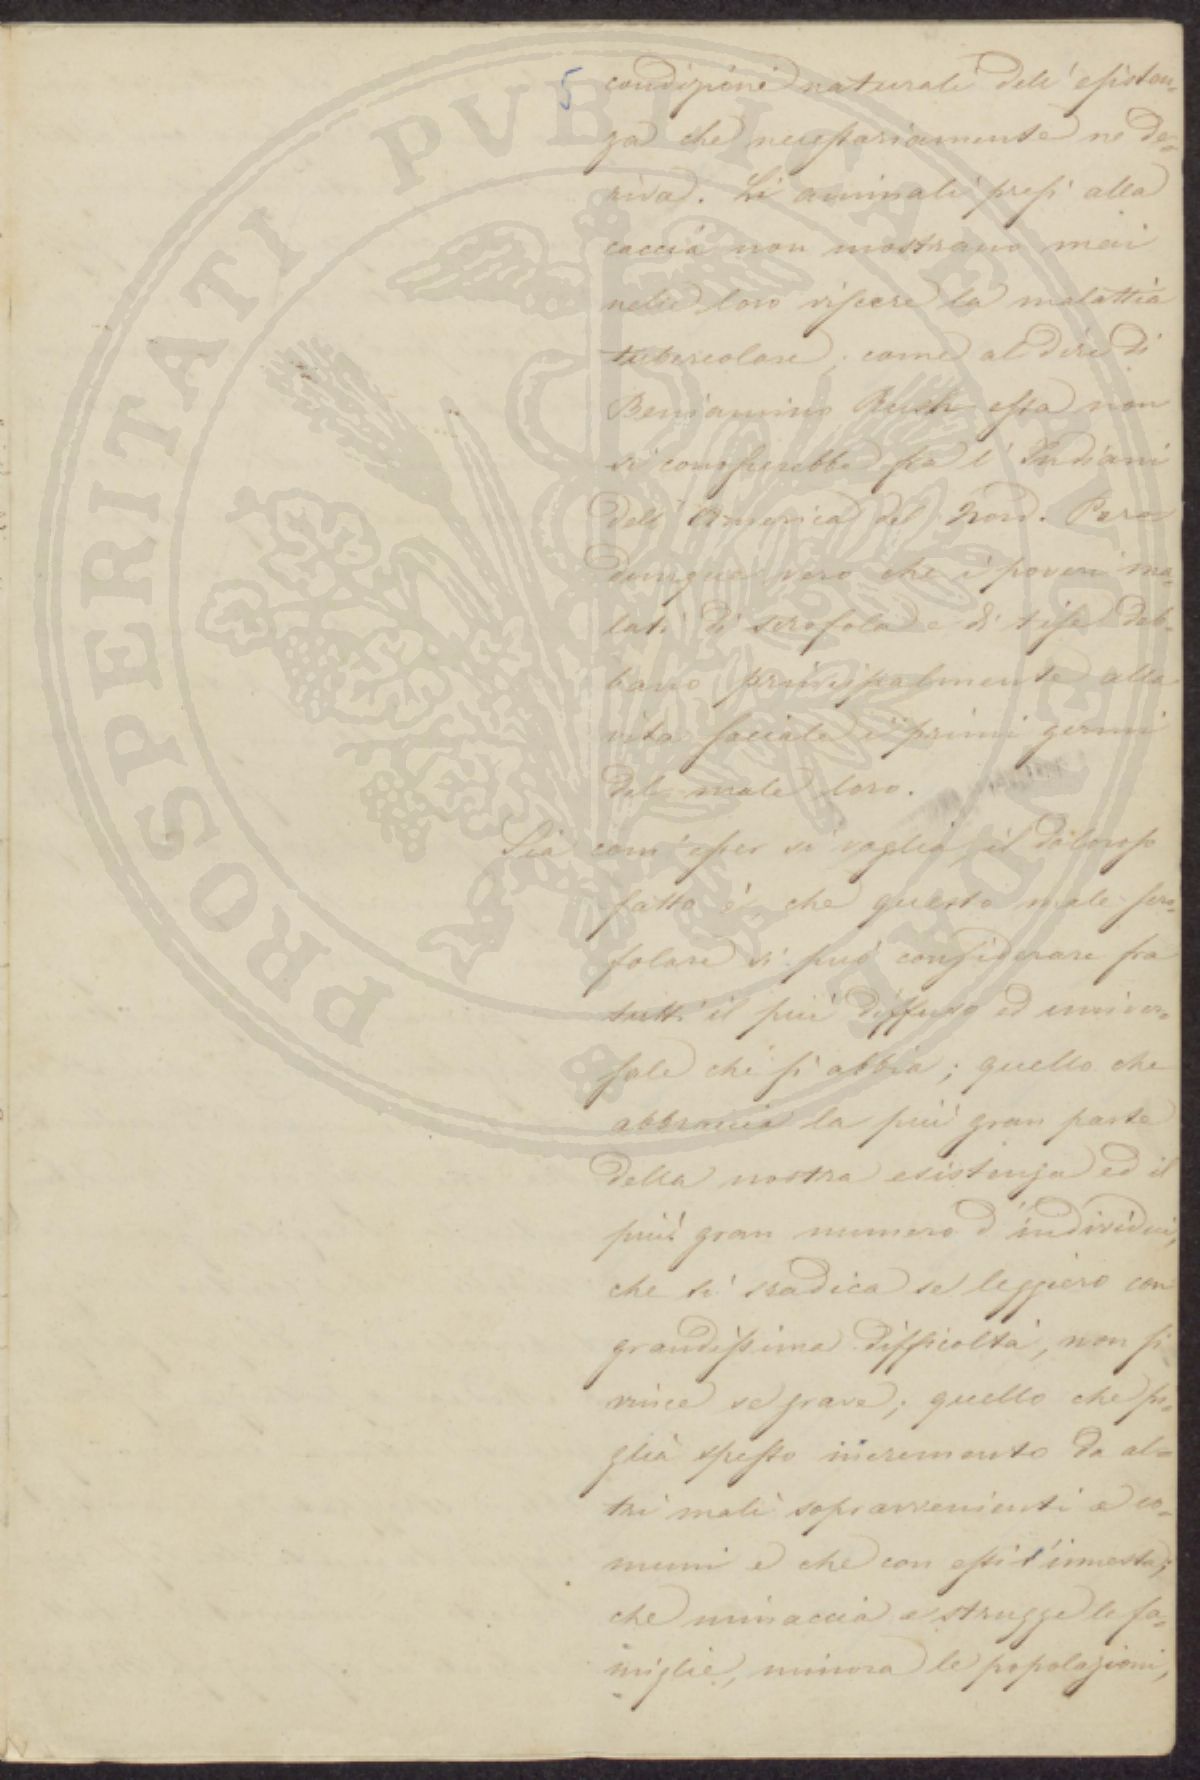 5
condizioni naturali dell' esisten-
za che necessariamente ne de-
riva. Li animali presi alla
caccia non mostrano mai
nelle loro viscere la malattia
tubercolare, come al dire di
Beniamino Rush essa non
si conoscerebbe fra l' Indiani
dell' America del Nord. Pare
dunque vero che i poveri ma-
lati di scrofola e di tise deb-
bano principalmente alla
vita sociale i primi germi
del male loro.
Sia com' esser si voglia, il doloroso
fatto è, che questo male scro-
folare si può considerare fra
tutti il più diffuso ed univer-
sale che si abbia; quello che
abbraccia la più gran parte
della nostra esistenza ed il
più gran numero d' individui,
che si sradica se leggiero con
grandissima difficoltà, non si
vince se grave; quello che pi-
glia spesso incremento da al-
tri mali sopravvenienti e co-
muni e che con essi s' innesta;
che minaccia e strugge le fa-
miglie, minora le popolazioni,
PROSPERITATI PVBLICAE AVGENDAE